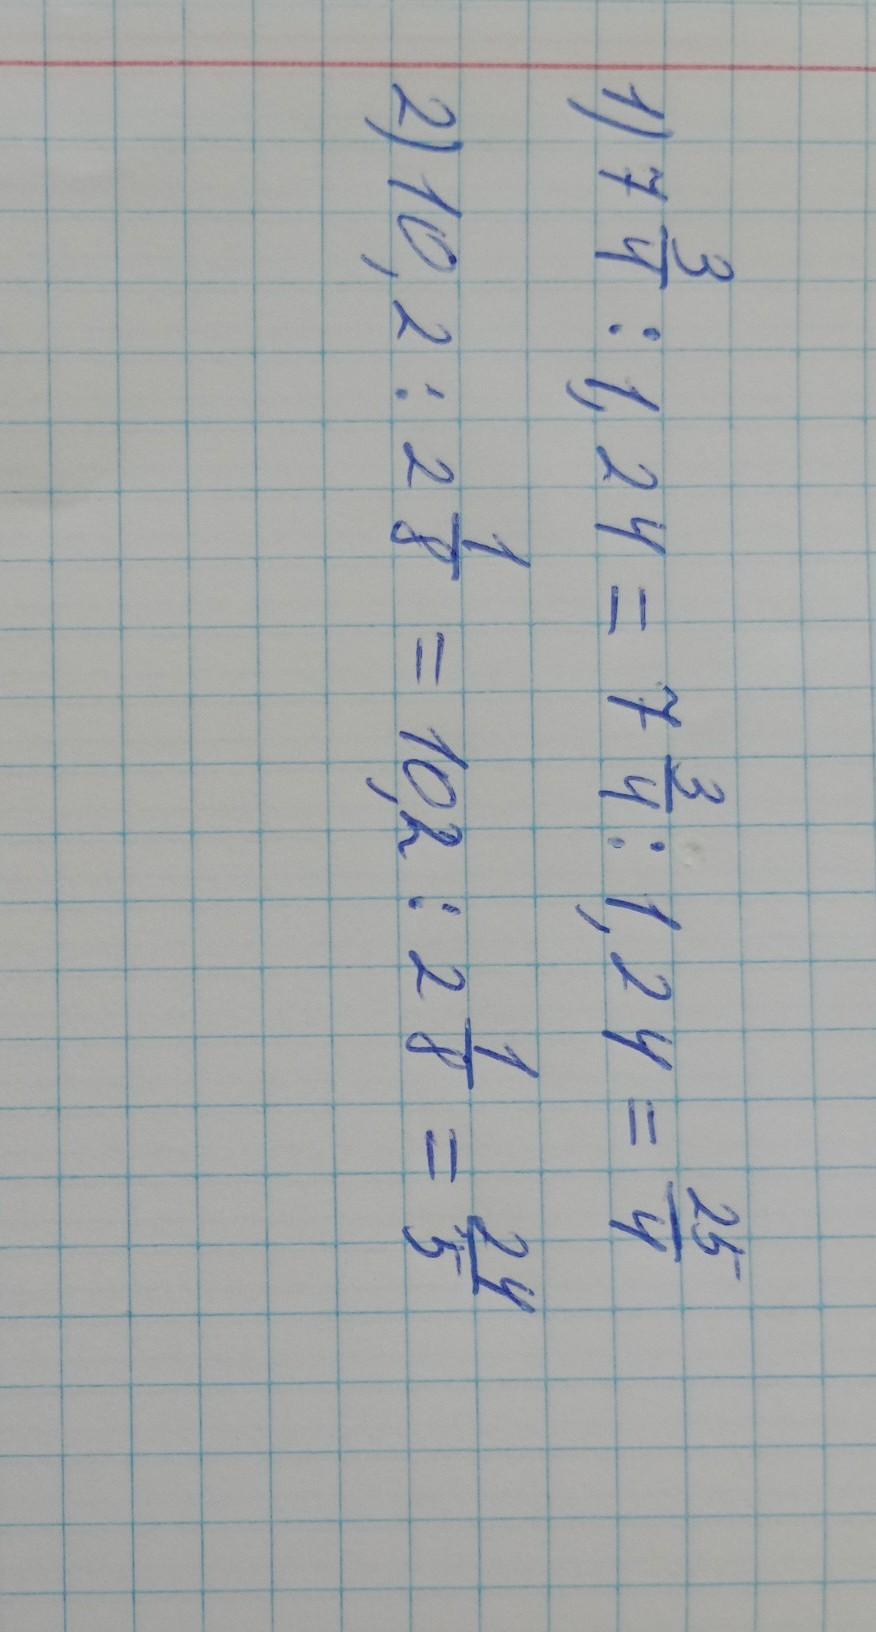 1) 7 3/4 : 1,24 = 7 3/4 : 1,24 = 25/4
2) 10,2 : 2 1/8 = 10,2 : 2 1/8 = 24/5